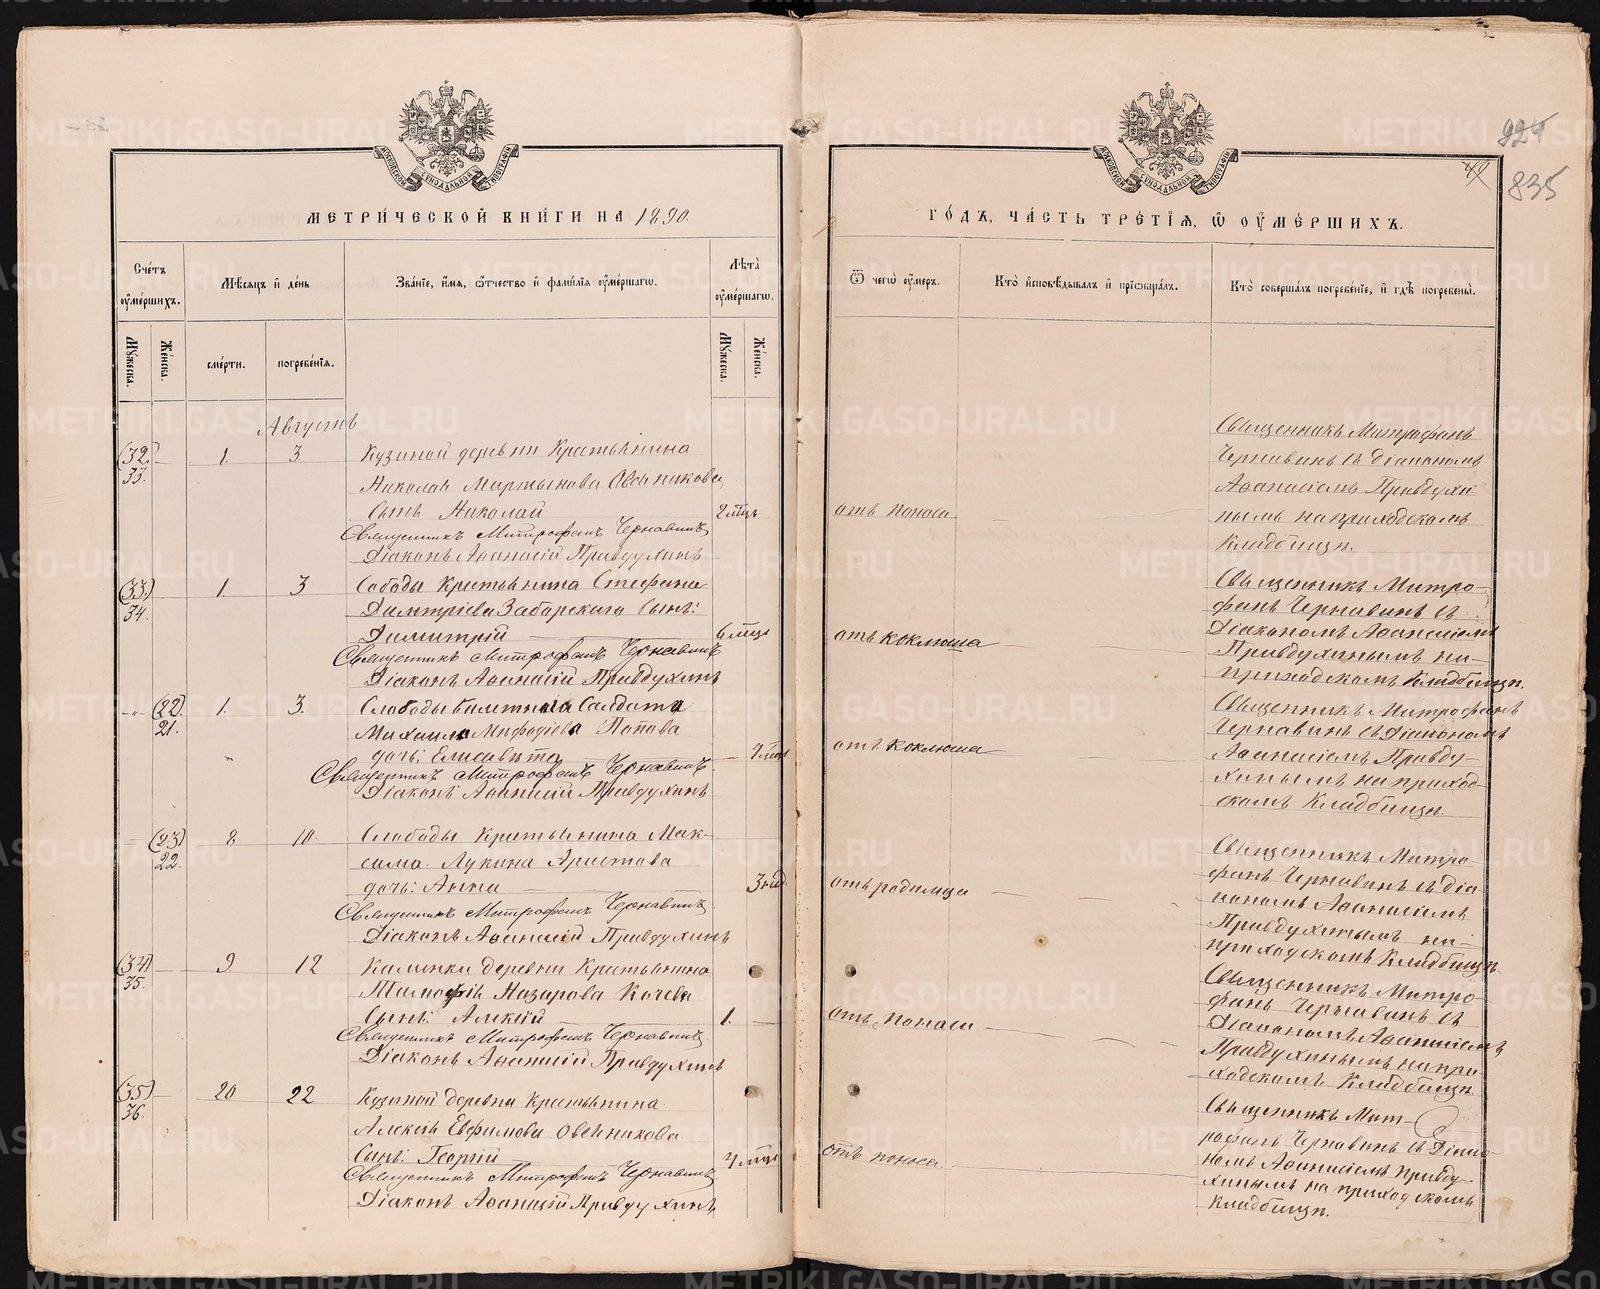 924
42
835
МОСКОВСКОЙ СѴНОДАЛЬНОЙ ТИПОГРАФІИ
МОСКОВСКОЙ СѴНОДАЛЬНОЙ ТИПОГРАФІИ
МЕТРИ́ЧЕСКОЙ КНИ́ГИ НА 1890.
ГО́ДЪ, ЧА́СТЬ ТРЕ́ТІѦ, Ѡ ОУ҆МЕ́РШИХЪ.
Сче́тъ оу҆ме́ршихъ.
Мꙋ́жеска.
Же́нска.
Мѣ́сѧцъ и҆ де́нь
сме́рти.
погребе́нїѧ.
Зва́нїе, и҆́мѧ, ѻ҆́тчество и҆ фами́лїѧ оу҆ме́ршагѡ.
Лѣ́та оу҆ме́ршагѡ.
Мꙋ́жеска.
Же́нска.
Ѿ чегѡ̀ оу҆́меръ.
Кто̀ и҆сповѣ́дывалъ и҆ прїѡбща́лъ.
Кто̀ соверша́лъ погребе́нїе, и҆ гдѣ̀ погребены̀.
Августъ
(32) 33. 1. 3. Кузиной деревни Крестьянина
Николая Мартынова Овсянникова
Сынъ Николай 2 мца отъ поноса
Священникъ Митрофанъ Чернавинъ
Діаконъ Аѳанасій Правдухинъ
Священникъ Митрофанъ
Чернавинъ съ Діакономъ
Аѳанасіемъ Правдухи
нымъ на приходскомъ
Кладбищѣ.
(33) 34. 1. 3 Слободы Крестьянина Стефана
Димитріева Забарскаго Сынъ:
Димитрій 6 мцъ отъ коклюша
Священникъ Митрофанъ Чернавинъ
Діаконъ Аѳанасій Правдухинъ
Священникъ Митро-
фанъ Чернавинъ съ
Діакономъ Аѳанасіемъ
Правдухинымъ на-
приходскомъ Кладбищѣ.
(22) 21. 1. 3. Слободы билетнаго Солдата
Михаила Меѳодіева Попова
дочь: Елисавета отъ коклюша
Священникъ Митрофанъ Чернавинъ
Діаконъ Аѳанасій Правдухинъ
Священникъ Митрофанъ
Чернавинъ съ Діакономъ
Аѳанасіемъ Правду-
хинымъ на приход-
скомъ Кладбищѣ.
(23) 22. 8 10 Слободы Крестьянина Мак-
сима Лукина Аристова
дочь: Анна 3 нед отъ родимца
Священникъ Митрофанъ Чернавинъ
Діаконъ Аѳанасій Правдухинъ
Священникъ Митро-
фанъ Чернавинъ съ Діа-
кономъ Аѳанасіемъ
Правдухинымъ на-
приходскомъ Кладбищѣ.
(34) 35. 9 12 Калинки деревни Крестьянина
Тимофѣя Назарова Кочева
Сынъ: Алексій 1. отъ поноса
Священникъ Митрофанъ Чернавинъ
Діаконъ Аѳанасій Правдухинъ
Священникъ Митро-
фанъ Чернавинъ съ
Діакономъ Аѳанасіемъ
Правдухинымъ на при-
ходскомъ Кладбищѣ.
(35) 36. 20 22 Кузиной Деревни Крестьянина
Алексѣя Евфимова Овсянникова
Сынъ: Георгій 4 мца отъ поноса.
Священникъ Митрофанъ Чернавинъ
Діаконъ Аѳанасій Правдухинъ
Священникъ Мит-
рофанъ Чернавинъ съ Діако-
номъ Аѳанасіемъ Правду-
хинымъ на приходскомъ
Кладбищѣ.
METRIKI.GASO-URAL.RU